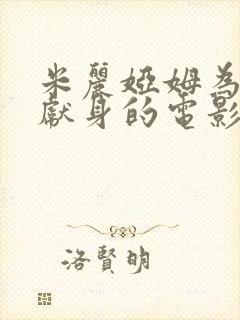 米麗婭姆為
獻身的電影
洛賢明